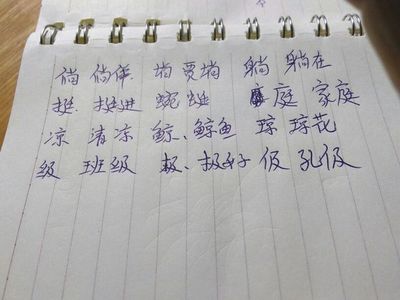 倘 倘佯 埫 贾埫 躺 躺在
挺 挺进 庭 家庭
凉 清凉 鲸、鲸鱼 琼 琼花
级 班级 极、极好 伋 孔伋